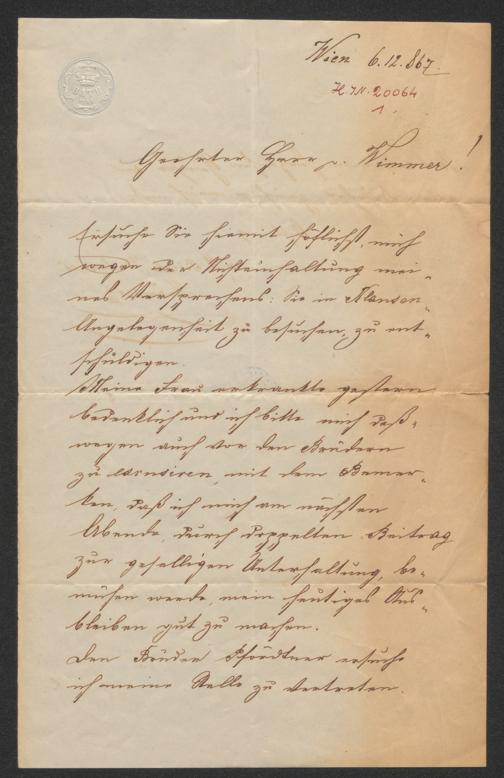 BATH
Wien 6.12.867.
H.I.N. 20064
1.
Geehrter Herr v. Wimmer!
Ersuche Sie hiemit höflichst, mich
wegen der Nichteinhaltung mei-
nes Versprechens: Sie in
Angelegenheit zu besuchen, zu ent-
schuldigen.
Meine Frau erkrankte gestern
bedenklich und ich bitte mich deß-
wegen auch vor den Brüdern
zu excusiren, mit dem Bemer-
ken, daß ich mich am nächsten
Abende, durch doppelten Beitrag
zur geselligen Unterhaltung, be-
mühen werde, mein heutiges Aus-
bleiben gut zu machen.
Den Bruder Pfördtner ersuche
ich meine Stelle zu vertreten.